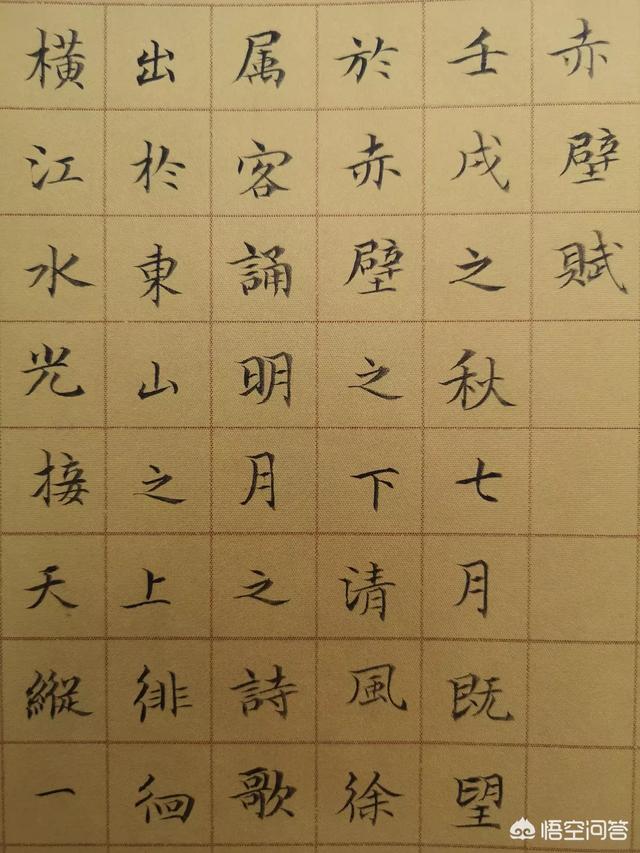 赤壁賦
壬戌之秋七月既望
於赤壁之下清風徐
属客誦明月之詩歌
出於東山之上徘徊
橫江水光接天縱一
悟空问答